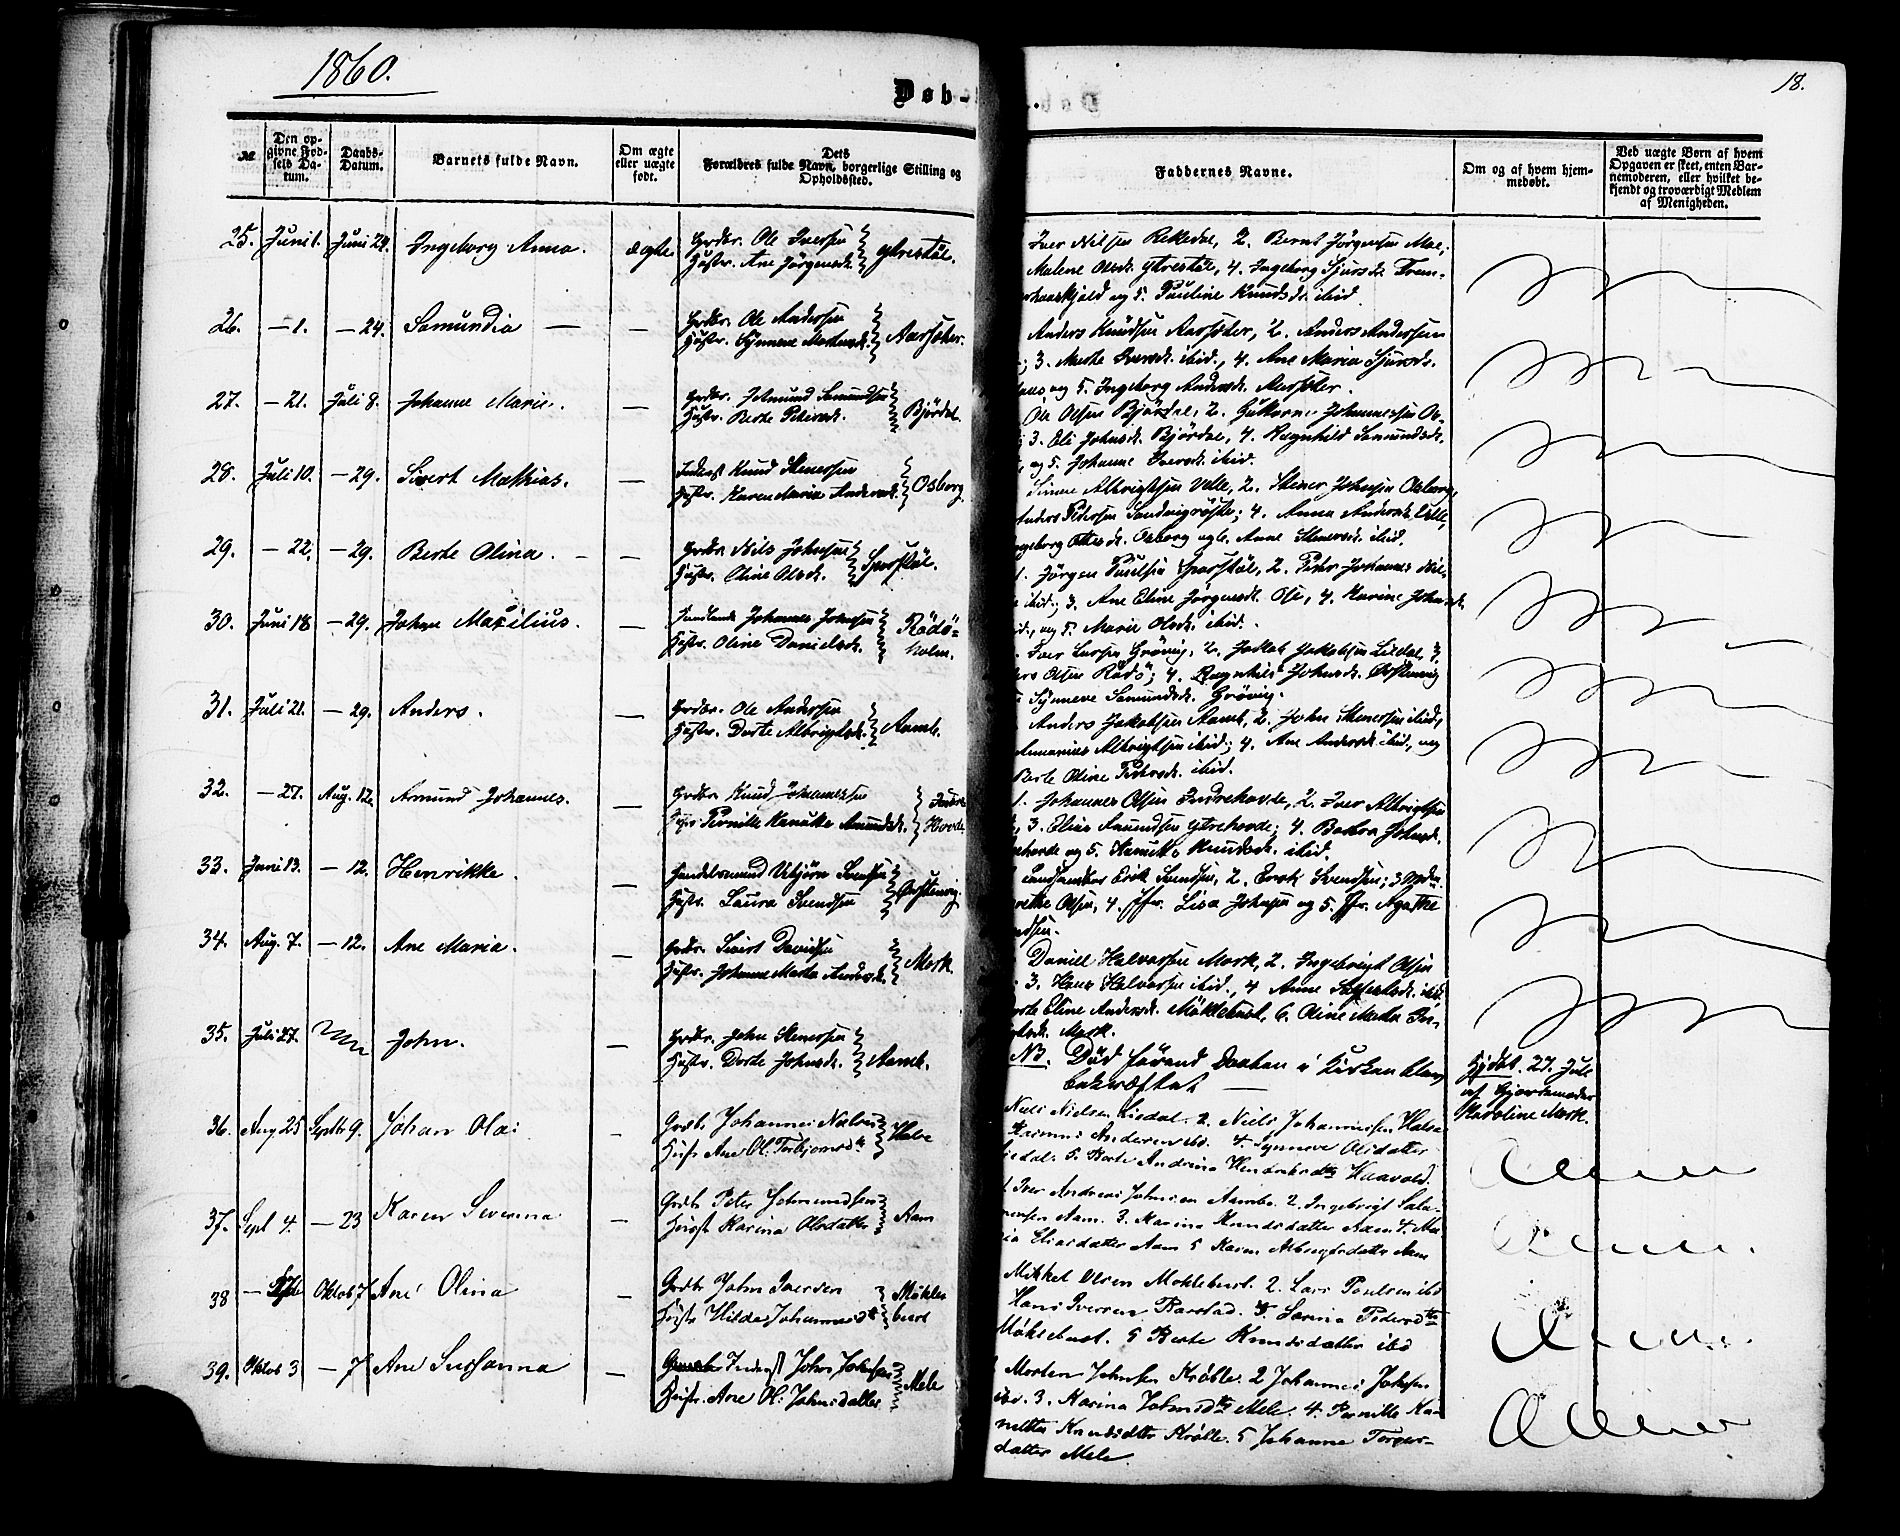 1860.
18.
Døb-
№
Den opgivne Fødsels Datum.
Daabs-Datum.
Barnets fulde Navn.
Om ægte eller uægte født.
Dets Forældres fulde Navn, borgerlige Stilling og Opholdssted.
Faddernes Navne.
Om og af hvem hjemmedøbt.
Ved uægte Børn af hvem Opgaven er skeet, enten Barnemoderen, eller hvilket bekjendt og troværdigt Medlem af Menigheden.
25. Juni 1. Juni 24. Ingeborg Anna. ægte Grdbr. Ole Iversen
Hustr. Ane Jørgensdr. Ytrestøl.
Iver Nilsen Rekedal, 2. Bernt Jørgensen Moe,
Malene Olsdr. Ytrestøl, 4. Ingeborg Sjursdr. Frem-
og 5. Pauline Knudsdr. ibid.
26. — 1. — 24. Samundia — — Grdbr. Ole Andersen
Hustr. Synneve Mortensdr. Aarsæther.
Anders Knudsen Aarsæter, 2. Anders Andersen
3. Marthe Iversdr. ibid., 4. Ane Maria Sjursdr.
og 5. Ingeborg Andersdr. Aarsæter.
27. — 21. Juli 8. Johanne Marie. — Grdbr. Samundsen
Hustr. Berthe Petersdr. Bjørdal.
Ole Olsen Bjørdal, 2. Johannessen
3. Eli Johnsdr. Bjørdal, 4. Ragnhild Samundsdr.
og 5. Johanne Iversdr. ibid.
28. Juli 10. — 29. Sivert Mathias. — Inderst Knud Stenersen
Hustr. Karen Maria Andersdr. Osborg
Simon Albrigtsen Velle, 2. Stener Johnsen Osborg,
Anders Pedersen 4. Anna Andersdr. Velle,
Ingeborg Ottesdr. Osborg Anne Stenersdr. ibid.
29. — 22. — 29. Berte Olina. — — Grdbr. Nils Johnsen
Hustr. Oline Olsdr. Sporstøl.
1. Jørgen Poulsen Sporstøl, 2. Peter Johannes
ibid; 3. Ane Eline Jørgensdr. Ose, 4. Karine Johnsdr.
og 5. Marie Olsdr. ibid.
30. Juni 18 — 29. Johan Maxilius. — Johannes Johnsen
Hustr. Oline Danielsdr. Rødø-
holm.
Iver Larsen Grøvig, 2. Jakob Jakobsen Liadal, 3.
Olsen Rødø; 4. Ragnhild Johnsdr. Ørstenvig
Synneve Samundsdr. Grøvig.
31. Juli 21. — 29. Anders. — Grdbr. Ole Andersen
Hustr. Dorte Albrigtsdr. Aamb.
Anders Jakobsen Aamb, 2. John Stenersen ibid,
Albrigtsen ibid; 4. Ane Andersdr. ibid., og
Berte Oline Petersdr. ibid.
32. — 27. Aug. 12. Amund Johannes. — Grdbr. Knud Johannessen
Hustr. Pernille Kanutte Amundsdr. Indre
Hovde
1. Johannes Olsen Indrehovde, 2. Iver Albrigtsen
3. Elias Amundsen Ytrehovde; 4. Barbra Johnsdr.
og 5. Knudsdr. ibid.
33. Juni 13. — 12. Henrikke. — Handelsmand Vebjørn Svendsen
Hustr. Laura Svendsen Ørstenvig
Landhandler Erik Svendsen, 2. Svendsen;
Olsen, 4. Jfr. Lisa Johnsen og 5. Jfr. Agathe
34. Aug. 7. — 12. Ane Maria. — Grdbr. Sivert Davidsen
Hustr. Johanne Marta Andersdr. Mork.
Daniel Halvorsen Mork, 2. Ingebrigt Olsen
3. Hans Halvorsen ibid., 4 Anne ibid
Eline Andersdr. Møklebust, 6. Oline Marta
Mork.
35. Juli 27. John. — Grdbr. John Stenersen
Hustr. Dorte Johnsdr. Aamb.
NB. Død førend Daaben i Kirken blev
bekræftet —
Hjdbt. 27. Juli
af Gjordemoder
Karoline Mork.
36. Aug 25 Septb 9. Johan Olai — Grdb Johannes Nielsen
Hust Ane Ol. Torbjørnsdtr Halse
Niels Nielsen Liadal. 2. Niels Johannessen Halse
Rasmus Andersen ibd. 4. Synneve Olsdatter
5. Berte Andrina Hendriksdtr Haavold.
37. Sept 4. — 23 Karen Severina — Grdb Peter
Hust Karina Olsdatter Aam
1. Iver Andreas Johnsen Aambe. 2. Ingebrigt
Aam. 3. Karina Knudsdatter Aam 4.
Eliasdatter Aam 5 Karen Albrigtsdatter Aam
38 — Oktob 7 Ane Olina — Grdb John Iversen
Hust Hilda Johannesdtr Møkle-
bust
Mikkel Olsen Moklebust. 2. Lars Poulsen ibd
Hans Iversen Barstad. 4. Larina Pedersdtr
Møklebust. 5 Berte Knudsdatter ibd
39. Oktob 3 — 7 Ane Susanna — Inderst John Johnsen
Hust. Ane Ol. Johnsdatter Mele
Morten Johnsen Krøble. 2 Johannes Johnsen
ibd. 3. Karina Johnsdtr Mele. 4. Pernille Ka-
Knudsdtr Krøble. 5 Johanne
datter Mele.